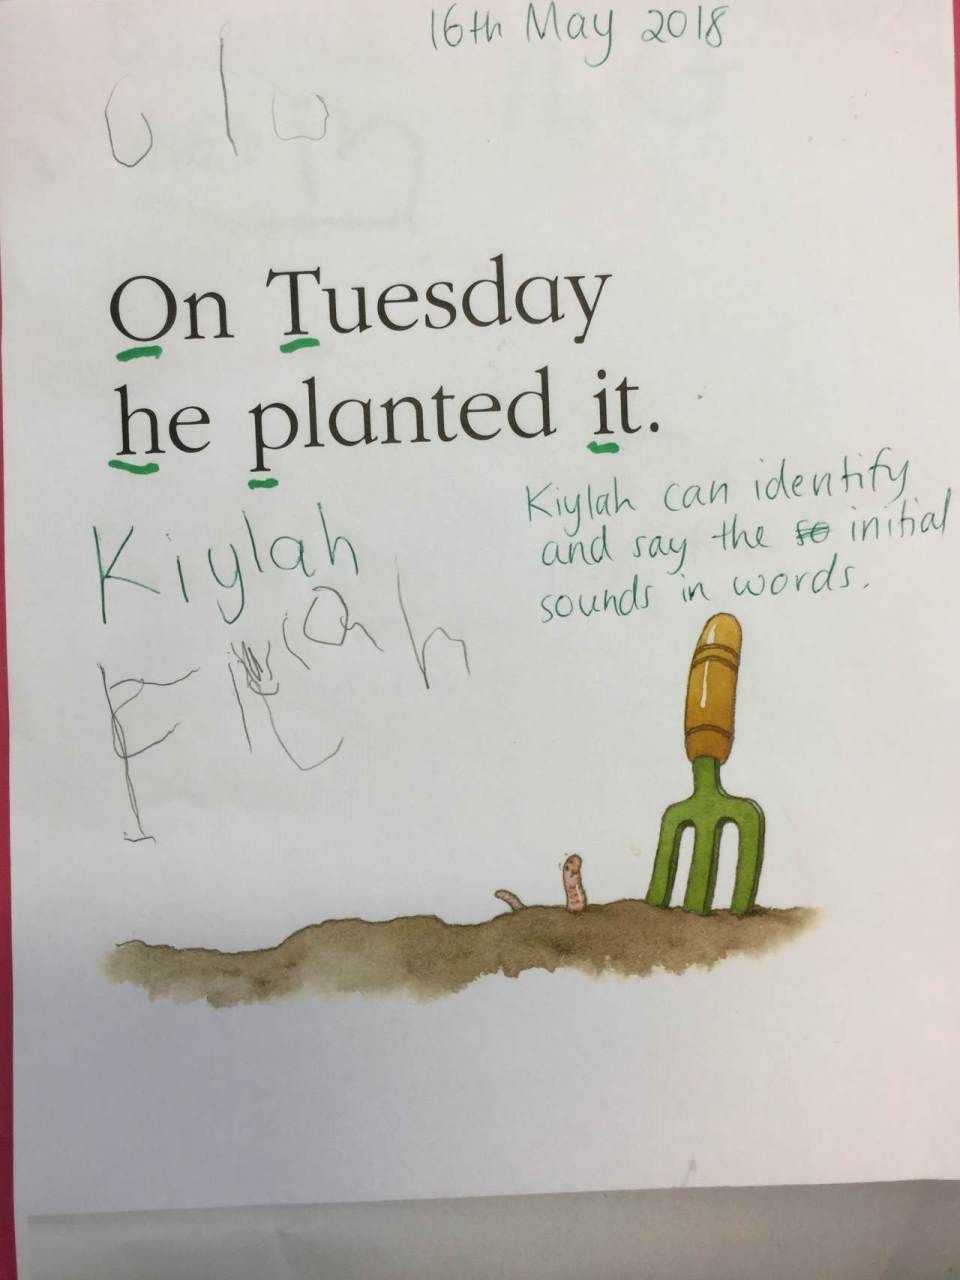 16th May 2018
On Tuesday
he planted it.
Kiylah can identify
and say the so initial
sounds in words.
Kiylah